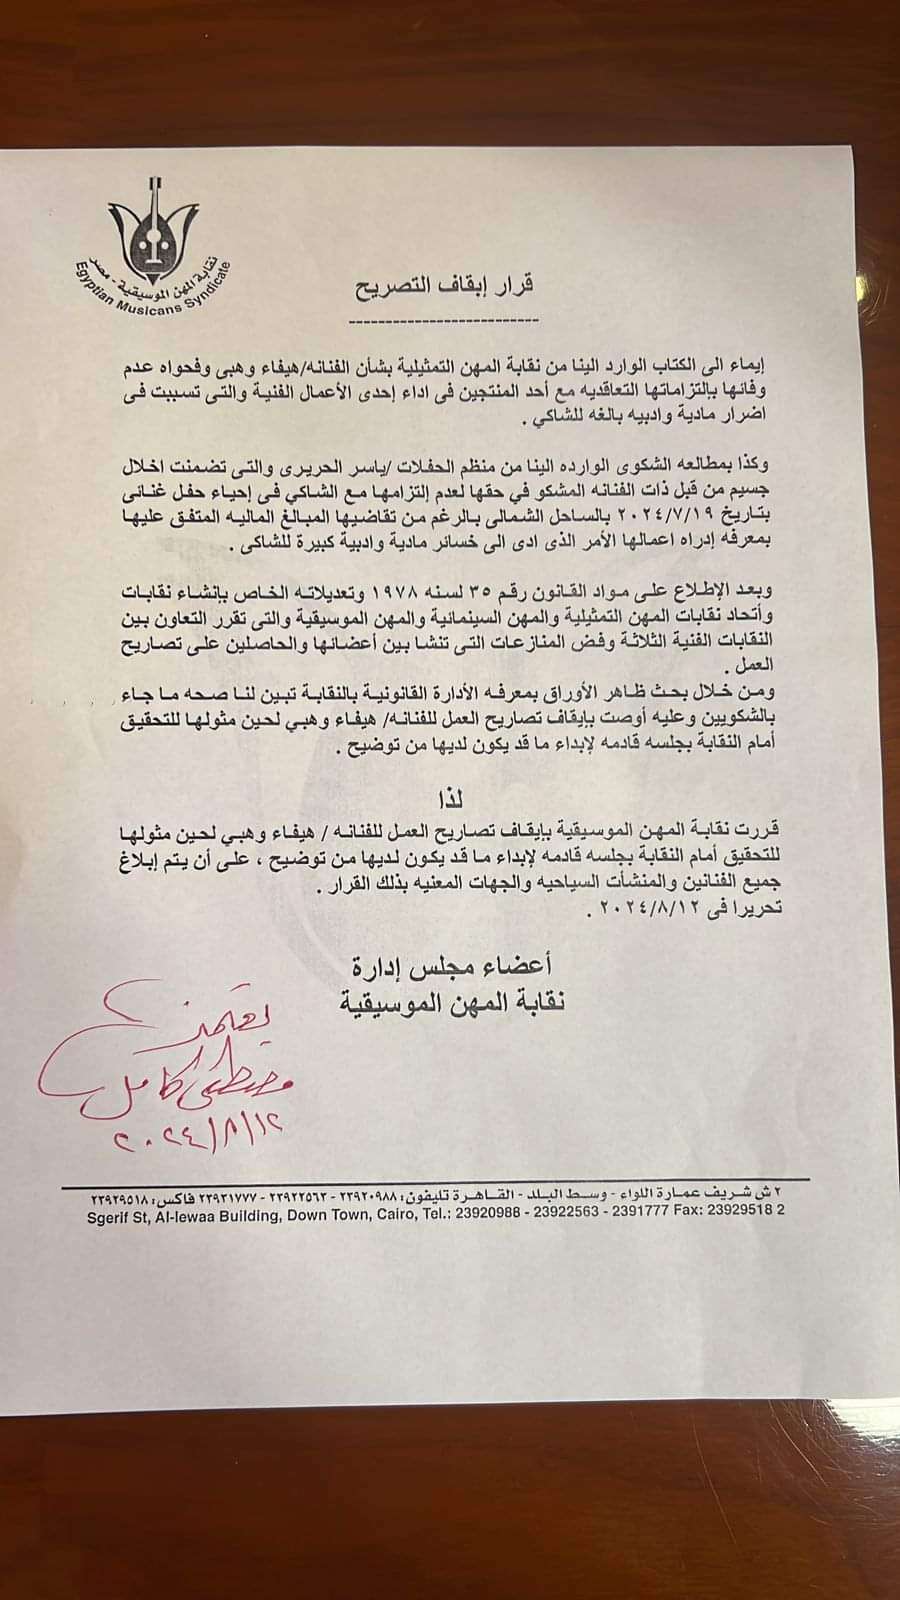 نقابة المهن الموسيقية - مصر
Egyptian Musicans Syndicate
قرار إبقاف التصريح
--------------------------
إيماء الى الكتاب الوارد الينا من نقابة المهن التمثيلية بشأن الفنانه/هيفاء وهبى وفحواه عدم
وفائها بإلتزاماتها التعاقديه مع أحد المنتجين فى اداء إحدى الأعمال الفنية والتى تسببت فى
اضرار مادية وادبيه بالغه للشاكي .
وكذا بمطالعه الشكوى الوارده الينا من منظم الحفلات /ياسر الحريرى والتى تضمنت اخلال
جسيم من قبل ذات الفنانه المشكو في حقها لعدم إلتزامها مع الشاكي فى إحياء حفل غنائى
بتاريخ ٢٠٢٤/٧/١٩ بالساحل الشمالى بالرغم من تقاضيها المبالغ الماليه المتفق عليها
بمعرفه إدراه اعمالها الأمر الذى ادى الى خسائر مادية وادبية كبيرة للشاكى .
وبعد الإطلاع على مواد القانون رقم ٣٥ لسنه ١٩٧٨ وتعديلاته الخاص بإنشاء نقابات
وأتحاد نقابات المهن التمثيلية والمهن السينمائية والمهن الموسيقية والتى تقرر التعاون بين
النقابات الفنية الثلاثة وفض المنازعات التى تنشا بين أعضائها والحاصلين على تصاريح
العمل .
ومن خلال بحث ظاهر الأوراق بمعرفه الأدارة القانونية بالنقابة تبين لنا صحه ما جاء
بالشكويين وعليه أوصت بإيقاف تصاريح العمل للفنانه/ هيفاء وهبي لحين مثولها للتحقيق
أمام النقابة بجلسه قادمه لإبداء ما قد يكون لديها من توضيح .
لذا
قررت نقابة المهن الموسيقية بإيقاف تصاريح العمل للفنانه / هيفاء وهبي لحين مثولها
للتحقيق أمام النقابة بجلسه قادمه لإبداء ما قد يكون لديها من توضيح ، على أن يتم إبلاغ
جميع الفنانين والمنشأت السياحيه والجهات المعنيه بذلك القرار .
تحريرا فى ٢٠٢٤/٨/١٢ .
أعضاء مجلس إدارة
نقابة المهن الموسيقية
يعتمد
مصطفى كامل
٢٠٢٤/٨/١٢
٢ ش شريف عمارة اللواء - وسط البلد - القاهرة تليفون: ٢٣٩٢٠٩٨٨ - ٢٣٩٢٢٥٦٣ - ٢٣٩٢١٧٧٧ فاكس: ٢٣٩٢٩٥١٨
Sgerif St, Al-lewaa Building, Down Town, Cairo, Tel.: 23920988 - 23922563 - 2391777 Fax: 23929518 2